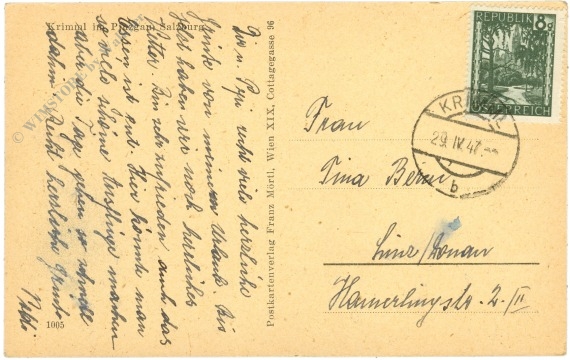 Krimml im Pinzgau, Salzburg
Dir u. Pepi recht viele herzliche
Grüße von meinem Urlaub. Bis
jetzt haben wir noch herrliches
Wetter. Bin sehr zufrieden auch das
Essen ist gut. Hier könnte man
so viele schöne Ausflüge machen
aber die Tage gehen so schnell
dahin. Recht herzliche Grüße
1005
Postkartenverlag Franz Mörtl, Wien XIX, Cottagegasse 96
REPUBLIK 8g
ÖSTERREICH
29. IV. 47
b
Frau
Tina
Linz/Donau
Hamerlingstr. 2/II
© WINSTORE